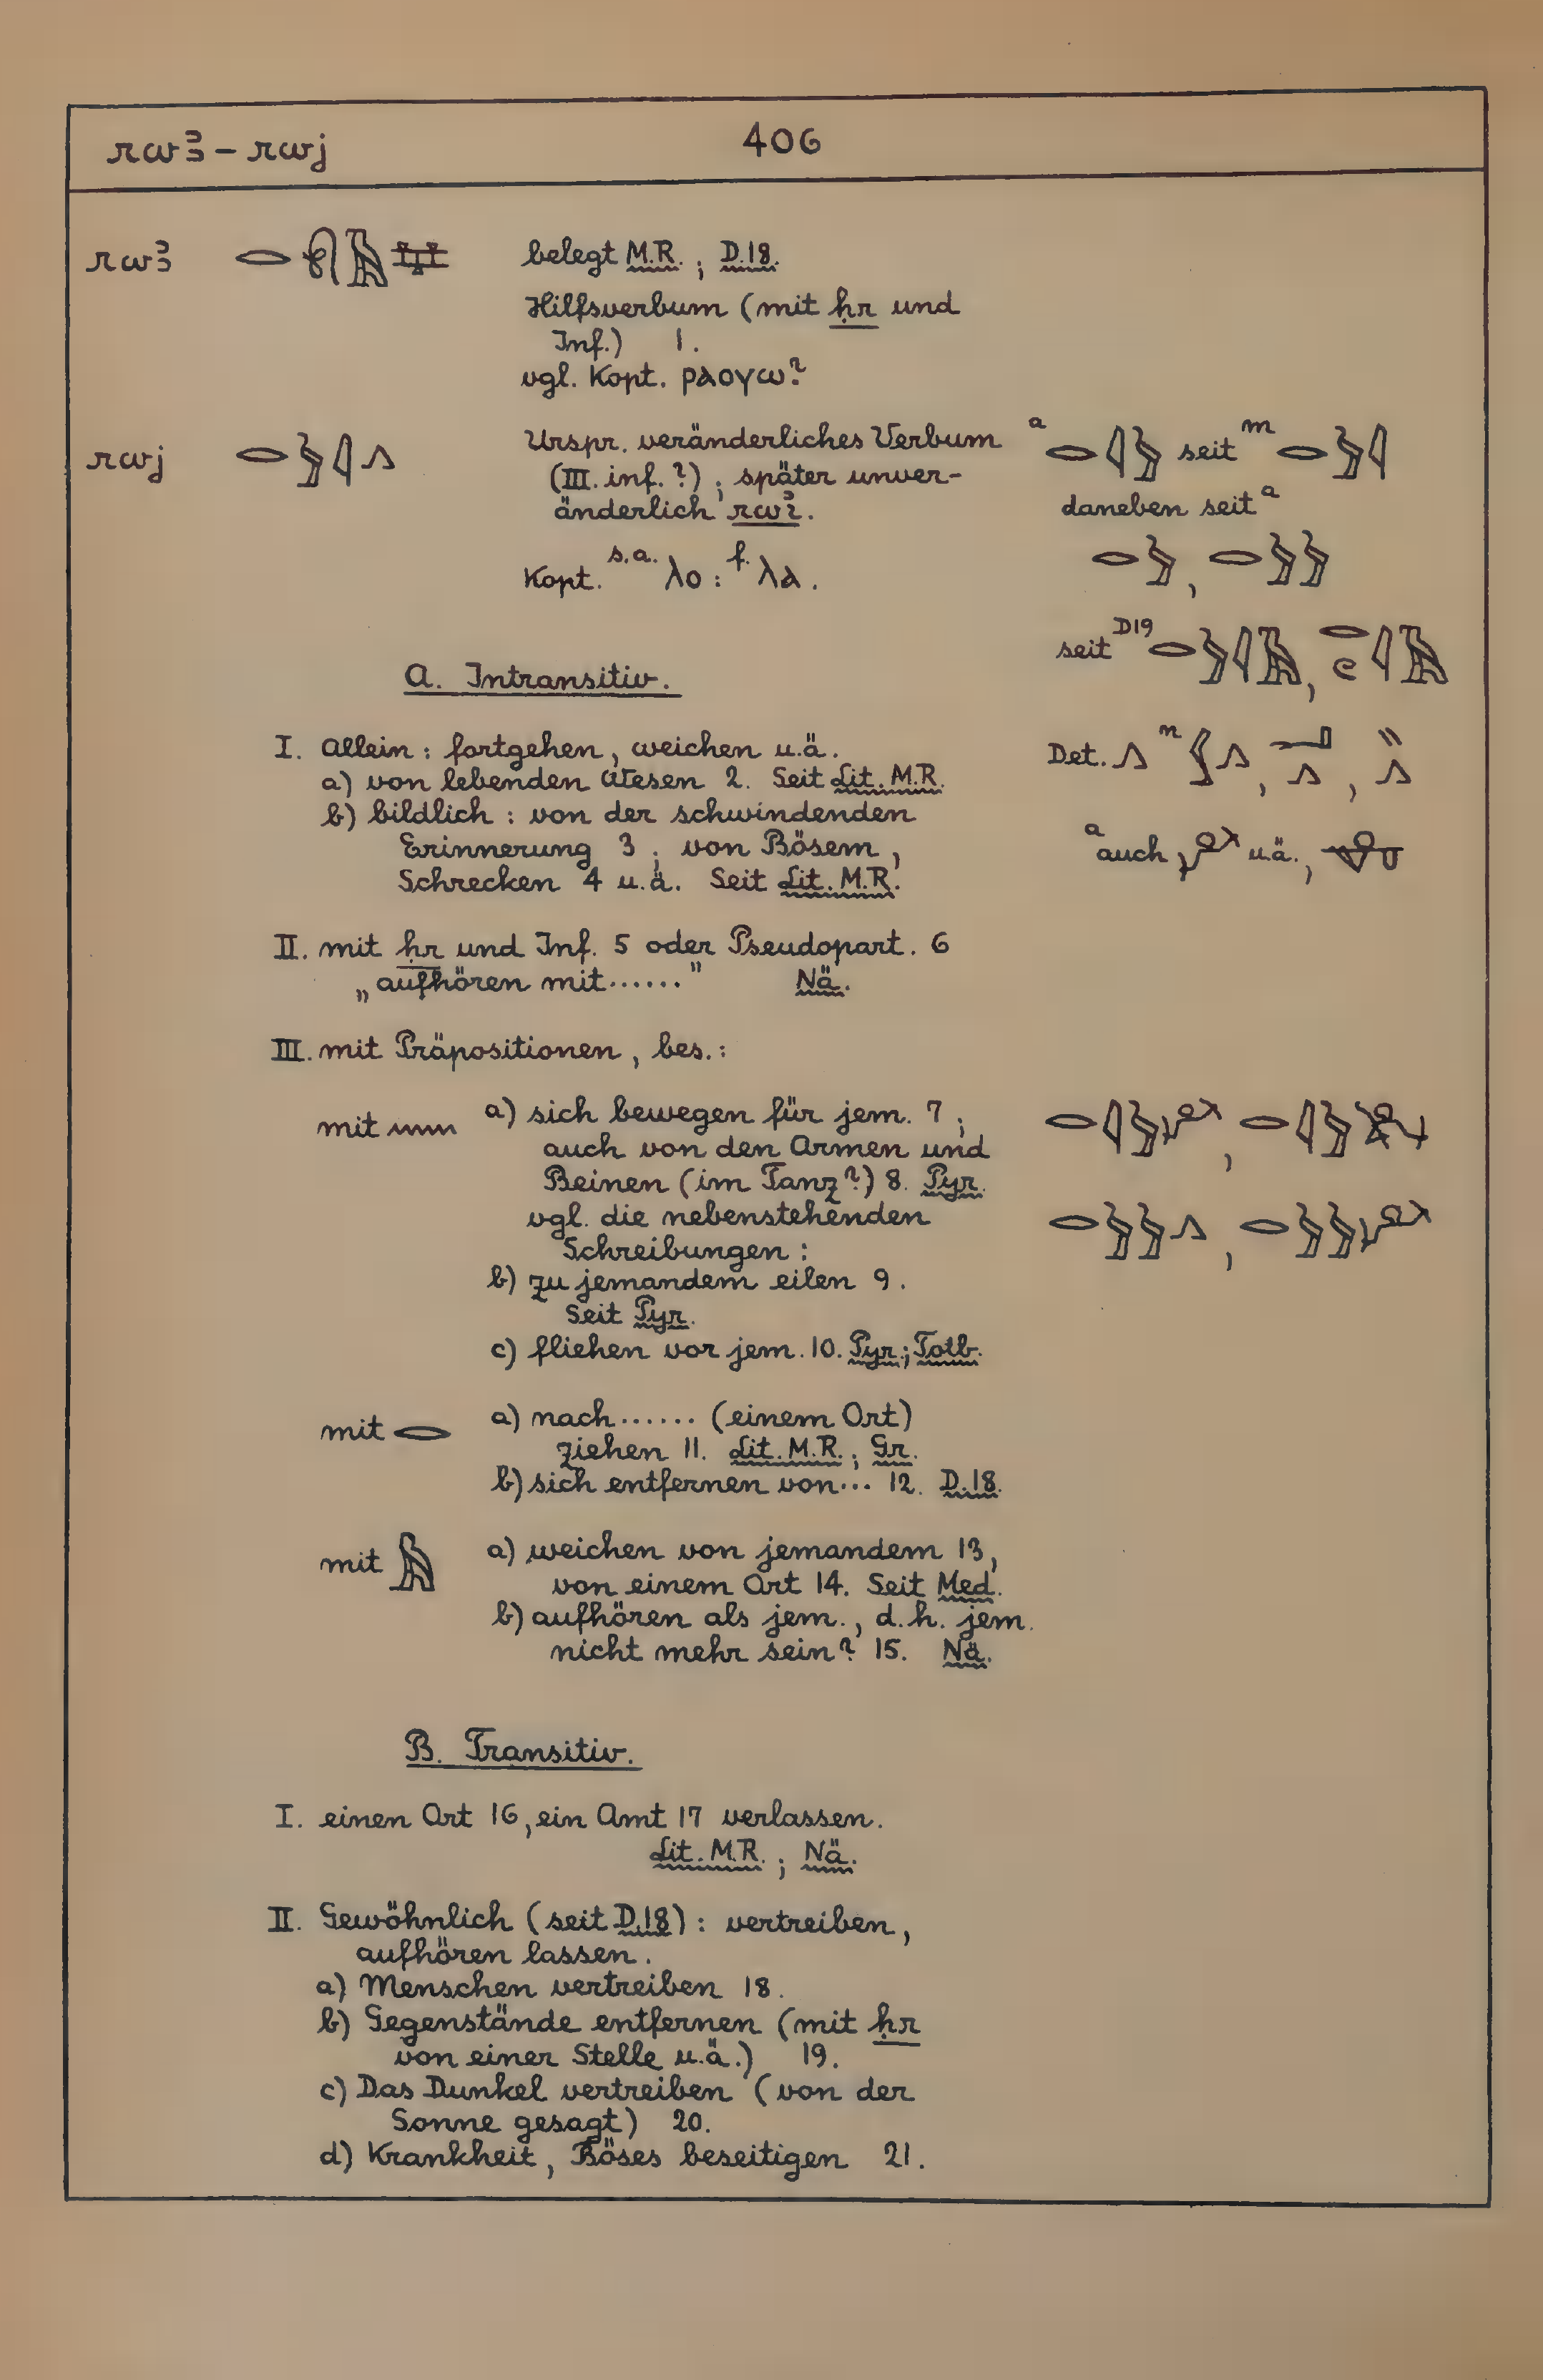 rwꜣ – rwj
406
rwꜣ
belegt M.R.; D.18.
Hilfsverbum (mit ḥr und
Inf.) 1.
vgl. Kopt. ⲣⲁⲟⲩⲱ?
rwj
Urspr. veränderliches Verbum
(III. inf.?); später unver-
änderlich rwꞽ.
Kopt. s.a. ⲗⲟ : f. ⲗⲁ.
a seit m
daneben seit a
seit D19
A. Intransitiv.
I. Allein: fortgehen, weichen u.ä.
a) von lebenden Wesen 2. Seit Lit. M.R.
b) bildlich: von der schwindenden
Erinnerung 3; von Bösem,
Schrecken 4 u.ä. Seit Lit. M.R.
Det. n
a auch u.ä.,
II. mit ḥr und Inf. 5 oder Pseudopart. 6
„aufhören mit......" Nä.
III. mit Präpositionen, bes.:
mit
a) sich bewegen für jem. 7;
auch von den Armen und
Beinen (im Tanz?) 8. Pyr.
vgl. die nebenstehenden
Schreibungen:
b) zu jemandem eilen 9.
Seit Pyr.
c) fliehen vor jem. 10. Pyr.; Totb.
mit
a) nach...... (einem Ort)
ziehen 11. Lit. M.R.; Gr.
b) sich entfernen von... 12. D.18.
mit
a) weichen von jemandem 13,
von einem Ort 14. Seit Med.
b) aufhören als jem., d.h. jem.
nicht mehr sein? 15. Nä.
B. Transitiv.
I. einen Ort 16, ein Amt 17 verlassen.
Lit. M.R.; Nä.
II. Gewöhnlich (seit D.18): vertreiben,
aufhören lassen.
a) Menschen vertreiben 18.
b) Gegenstände entfernen (mit ḥr
von einer Stelle u.ä.) 19.
c) Das Dunkel vertreiben (von der
Sonne gesagt) 20.
d) Krankheit, Böses beseitigen 21.